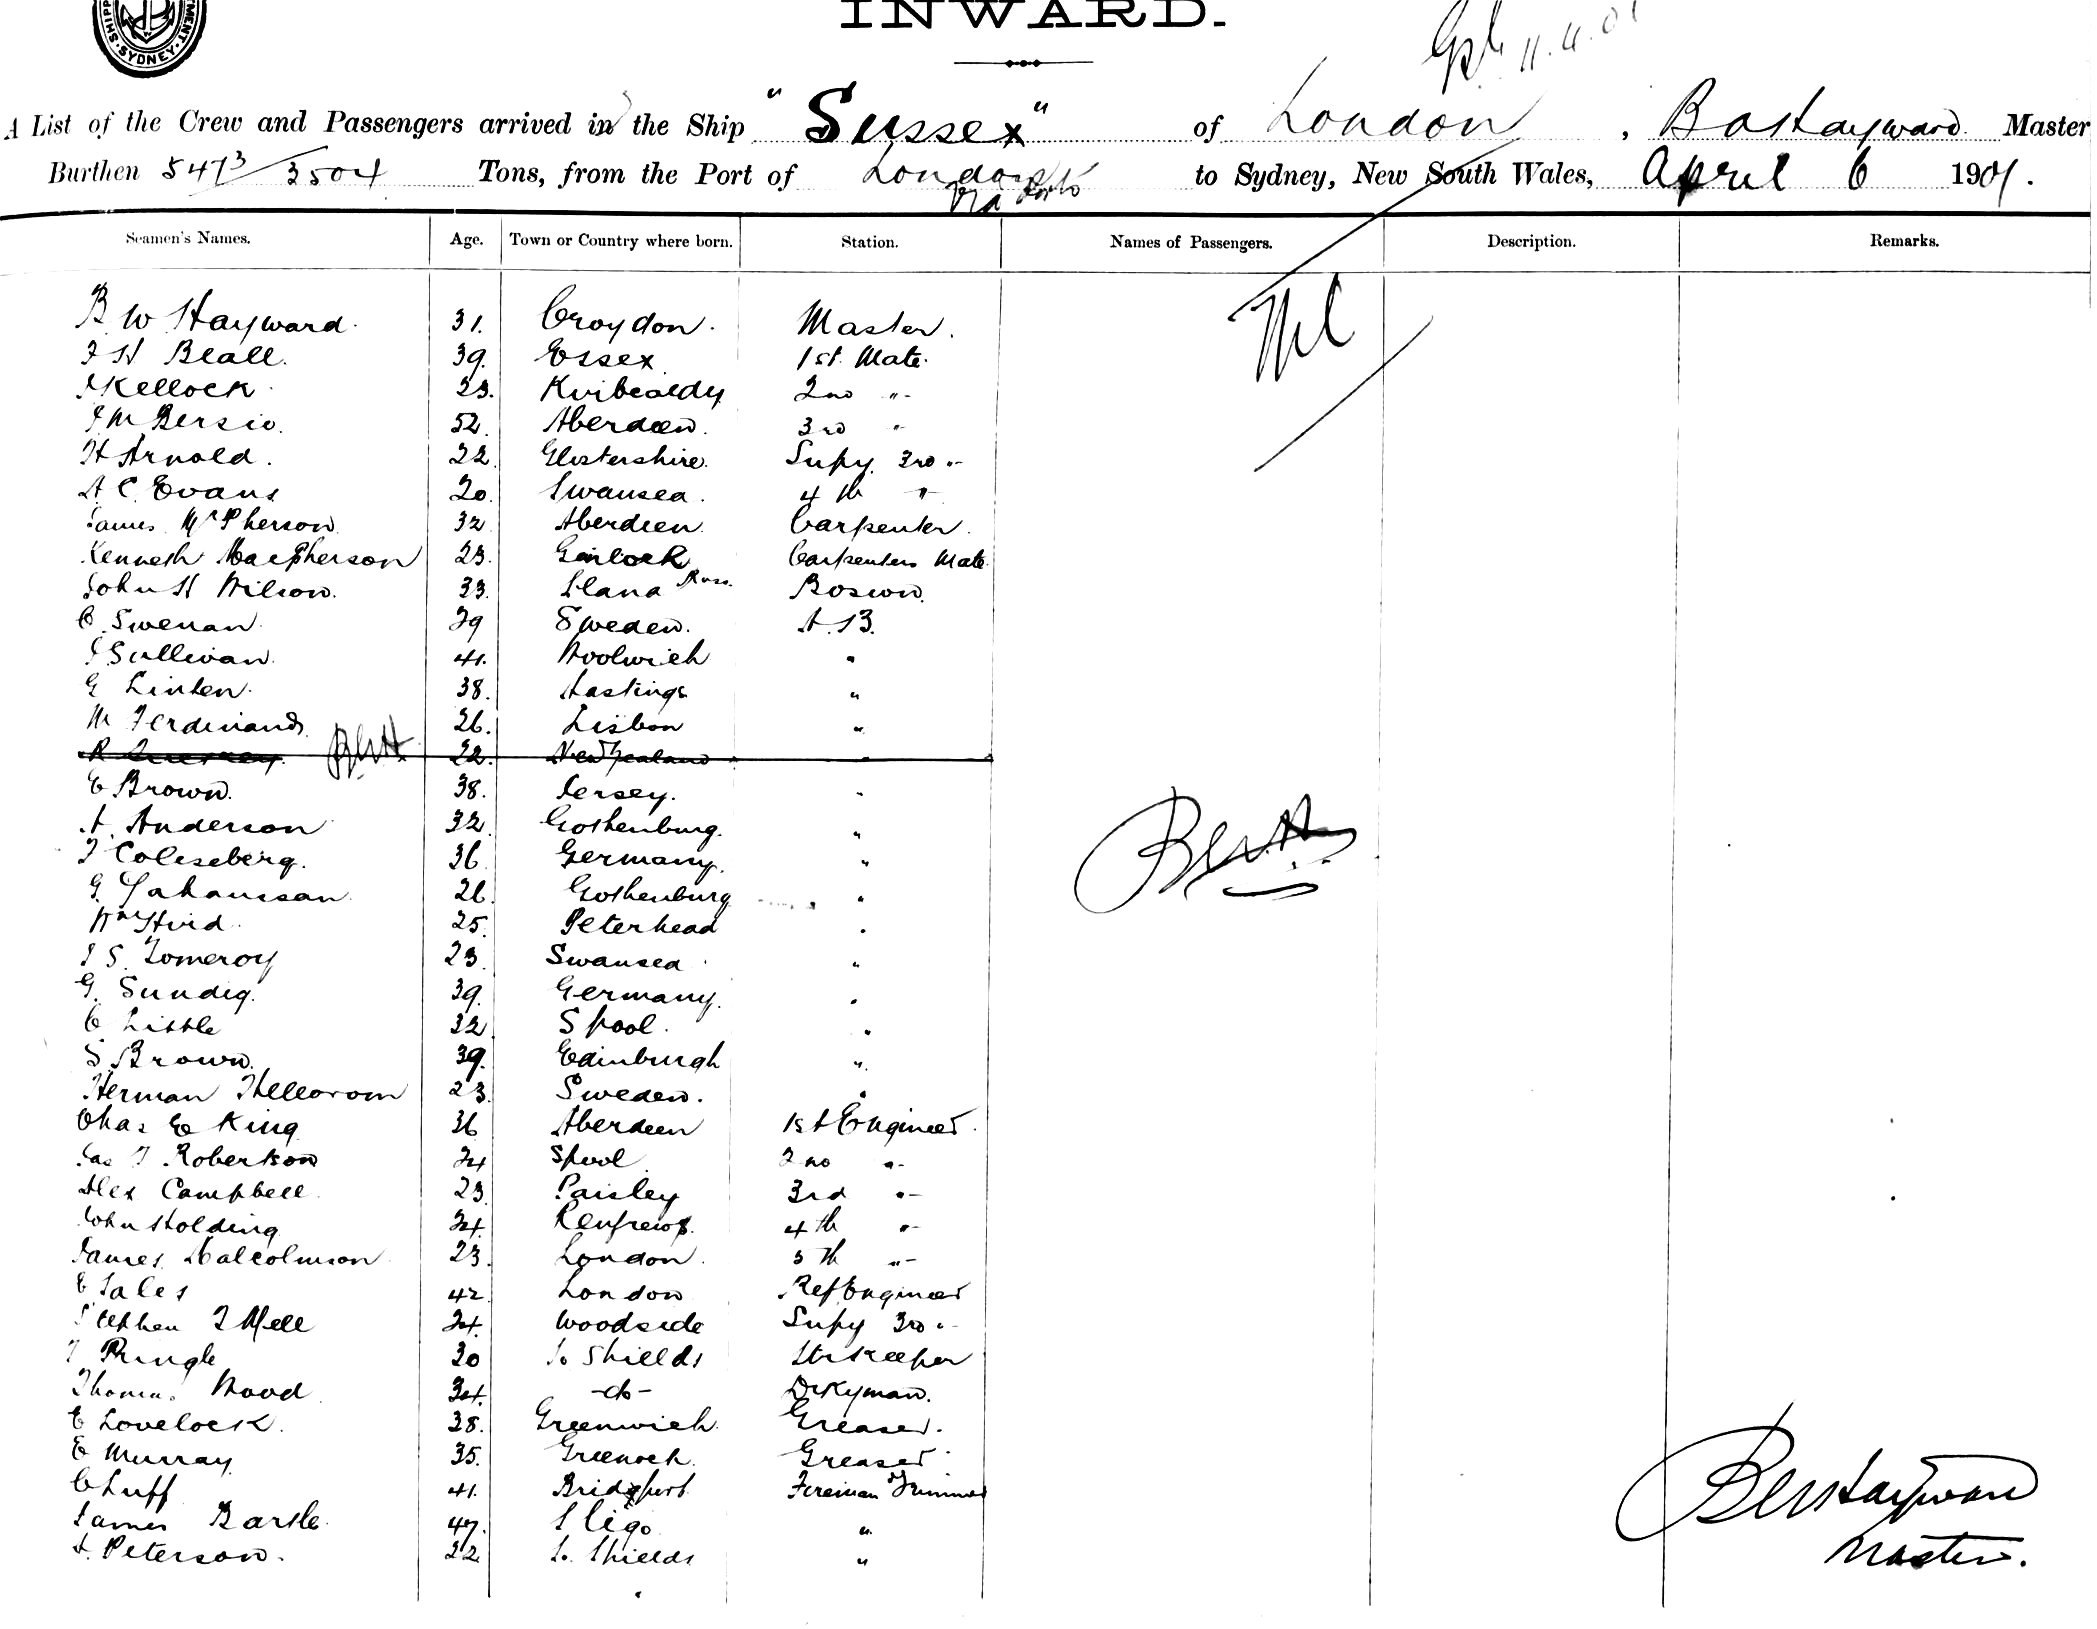 SYDNEY
INWARD.
A List of the Crew and Passengers arrived in the Ship "Sussex" of London, Hayward Master
Burthen 5473/3504 Tons, from the Port of London to Sydney, New South Wales, April 6 1901.
via Ports
Seamen's Names. Age. Town or Country where born. Station. Names of Passengers. Description. Remarks.
Nil
B W Hayward 31. Croydon. Master.
Beall. 39. Essex 1st Mate.
Kellock 23. 2nd "
52. Aberdeen. 3rd "
H Arnold. 22. Glostershire. Supy. 3rd "
A C Evans 20. Swansea. 4th "
James McPherson 32 Aberdeen. Carpenter.
Kenneth MacPherson 23. Carpenters Mate.
John H Wilson. 33. Bosun.
C. Swenan 39 Sweden. A.B.
J Sullivan. 41. Woolwich "
G Linten. 38. Hastings "
M Ferdinands 26. Lisbon "
22. New Zealand "
E Brown. 38. Jersey. "
A. Anderson 32 Gothenburg. "
36. Germany. "
G. Johansson 26. Gothenburg "
Wm 25. Peterhead "
23. Swansea "
G. Sundig. 39. Germany. "
C Little 32 "
S. Brown. 39. Edinburgh "
Herman 23. Sweden. "
Chas E King 36 Aberdeen 1st Engineer.
Jas Robertson 2nd "
Alex Campbell 23. Paisley 3rd "
John Holding 4th "
James Malcolmson 23. London. 5th "
E Sales 42. London Ref Engineer
Stephen Woodside Supy 3rd "
Pringle 30 So Shields Storekeeper
Thomas Wood 34. -do- Dnkyman.
E Lovelock. 38. Greenwich Greaser.
E Murray 35. Greenock. Greaser
C Luff 41. Bridgport Fireman Trimmer
James 47. Sligo "
A. Peterson. 22. So. Shields "
Hayward
Master.